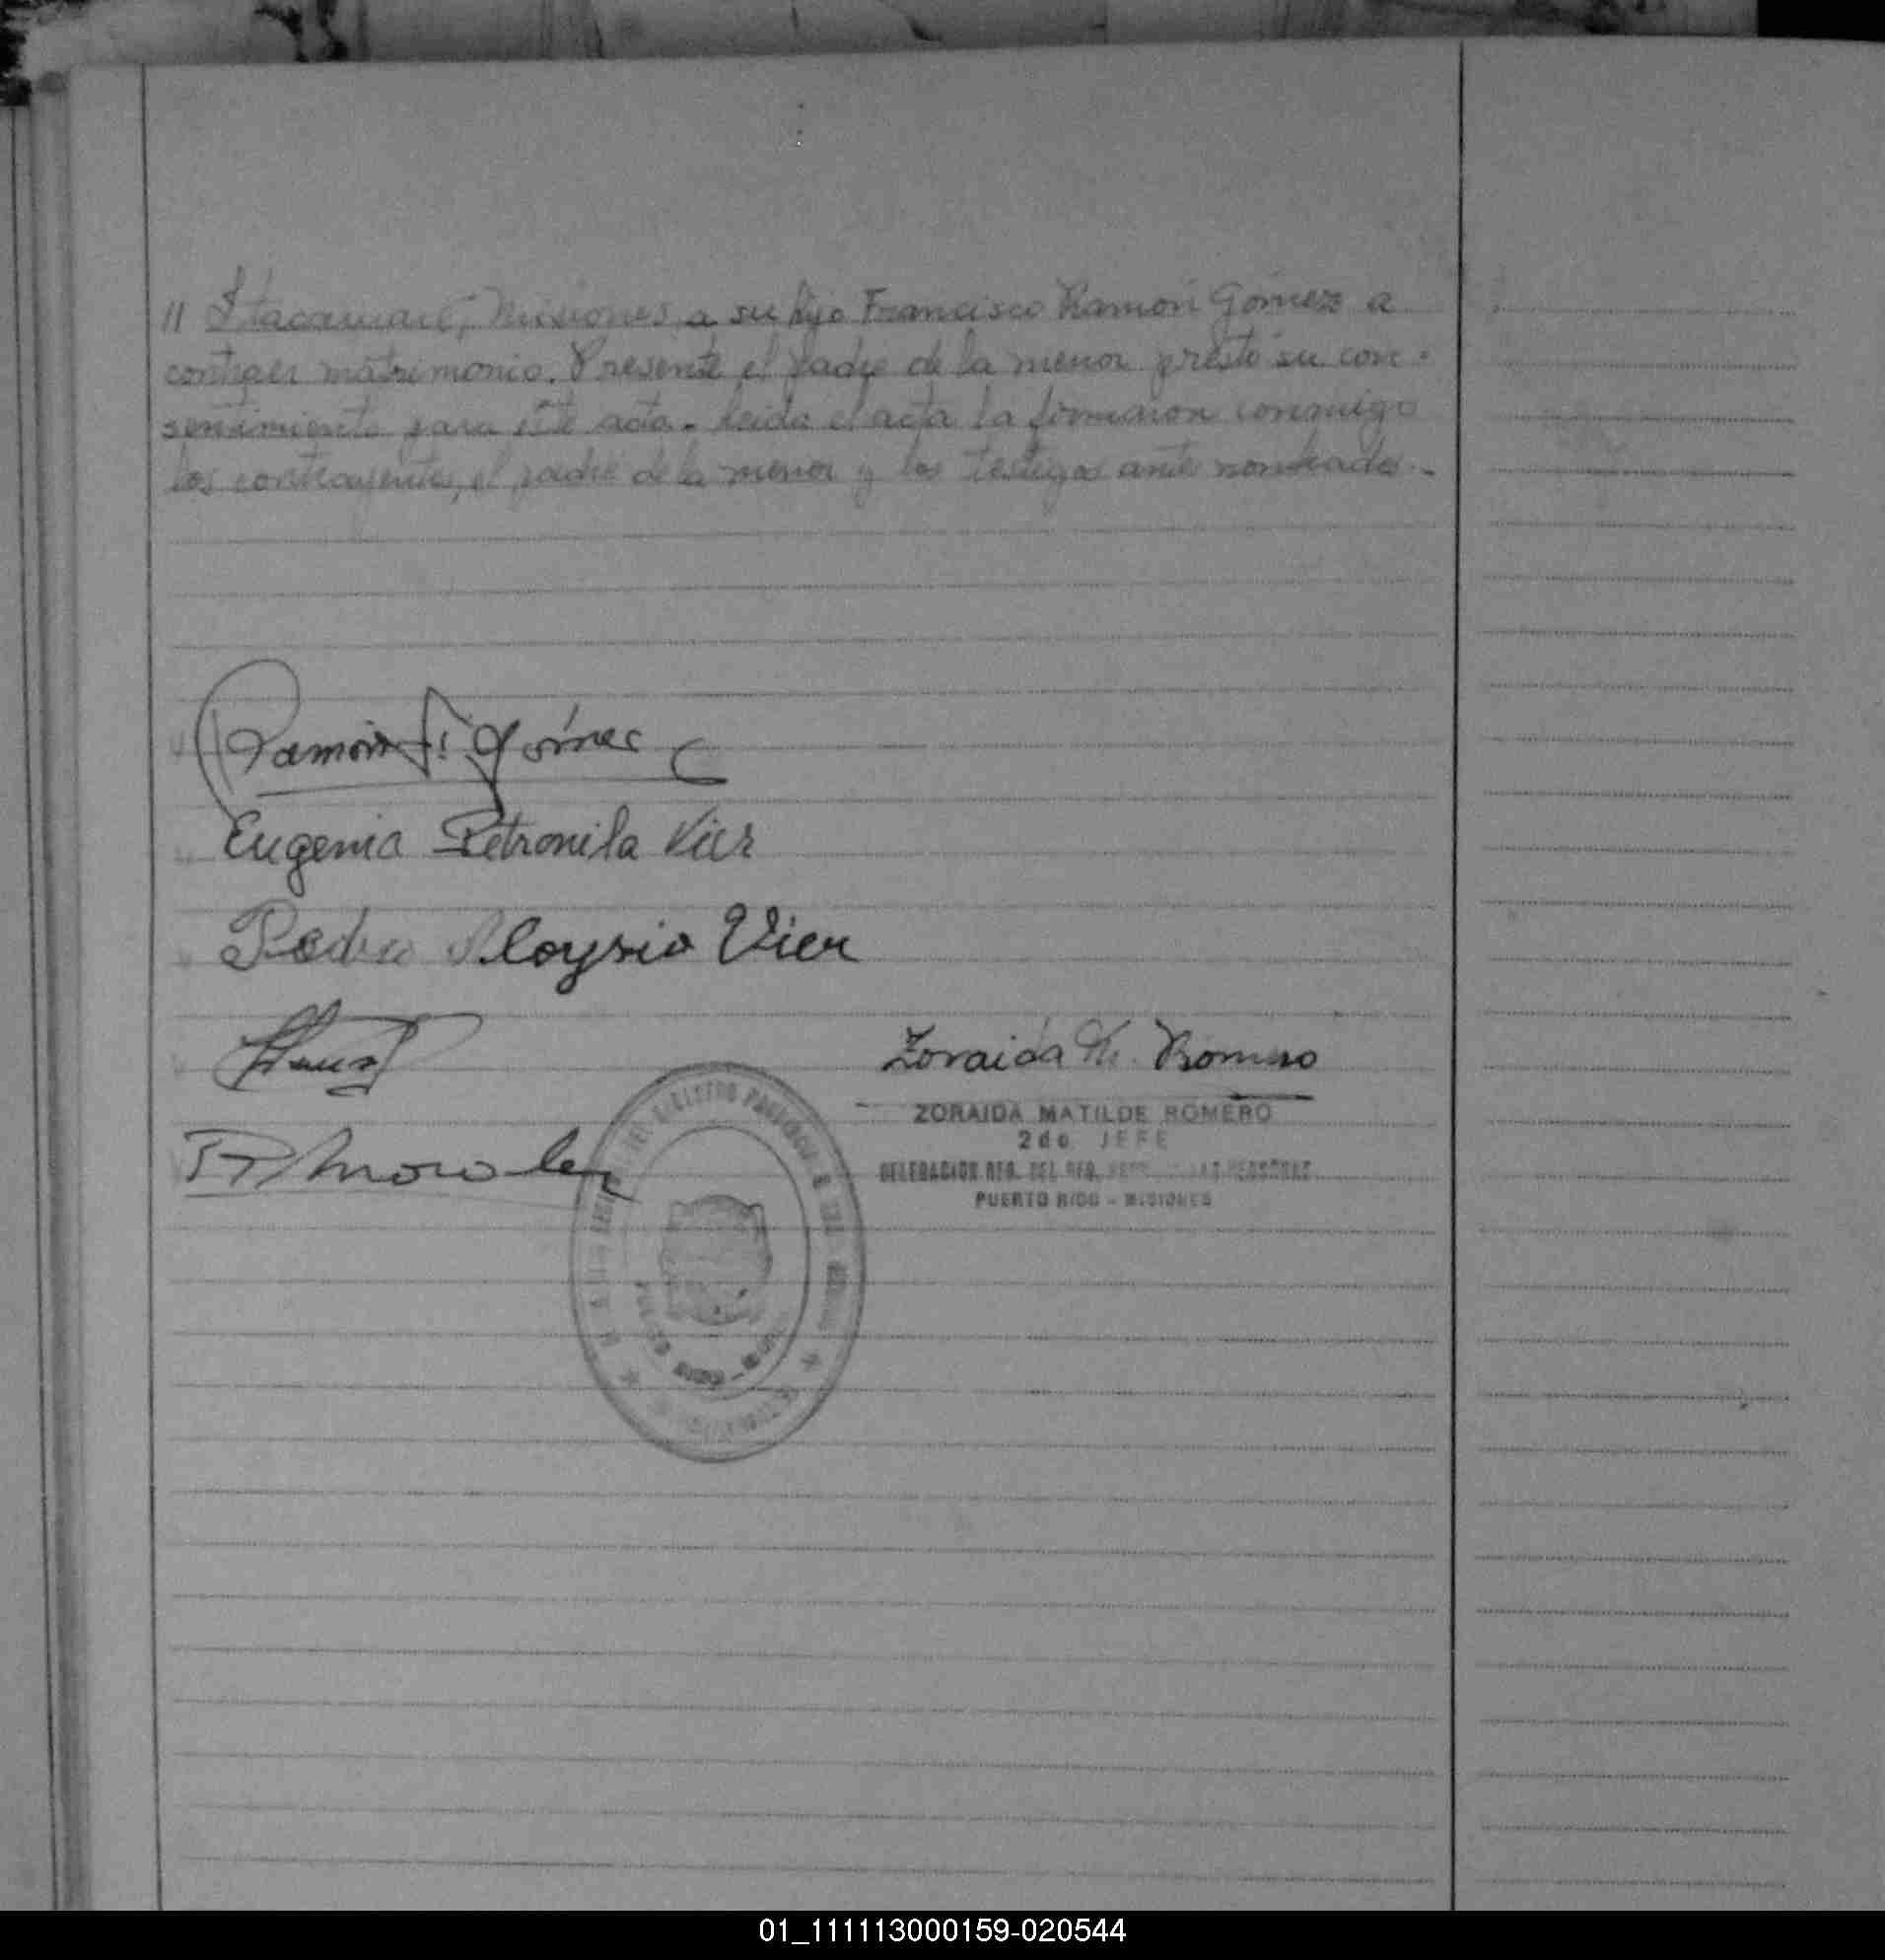 11 Itacaruaré, Misiones a su hijo Francisco Ramón Gómez a
contraer matrimonio. Presente el padre de la menor prestó su con-
sentimiento para este acto. Leida el acta la firmaron conmigo
los contrayentes, el padre de la menor y los testigos ante nombrados.-
Ramón F. Gómez
Eugenia Petronila Vier
Pedro Aloysio Vier
Zoraida M. Romero
ZORAIDA MATILDE ROMERO
2do. JEFE
DELEGACION REG. DEL REG. LAS PERSONAS
PUERTO RICO - MISIONES
Morales
01_111113000159-020544